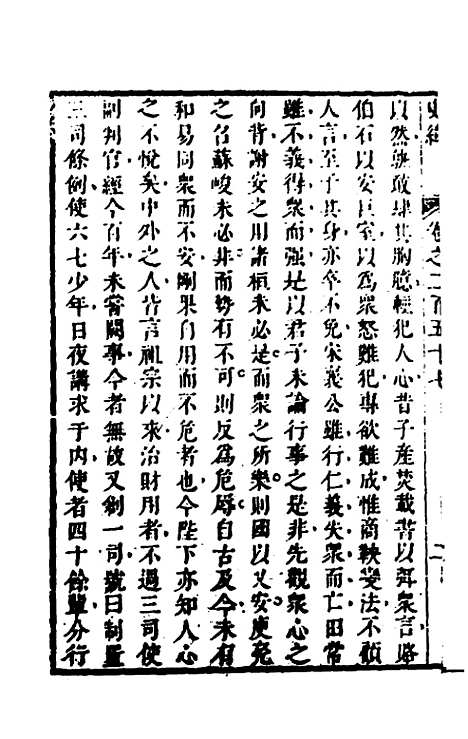 以然孰敢肆其胸臆輕犯人心昔子產焚載書以弭衆言賂
伯石以安巨室以爲衆怒難犯專欲難成惟商鞅變法不顧
人言至子其身亦卒不免宋襄公雖行仁義失衆而亡田常
雖不義得衆而强是以君子未論行事之是非先觀衆心之
向背謝安之用諸桓未必是而衆之所樂則國以乂安庾亮
之召蘇峻未必非而勢有不可則反爲危辱自古及今未有
和易同衆而不安剛果自用而不危者也今陛下亦知人心
之不悅矣中外之人皆言祖宗以來治財用者不過三司使
副判官經今百年未嘗闕事今者無故又創一司號曰制置
三司條例使六七少年日夜講求于内使者四十餘輩分行
卷之二百五十七